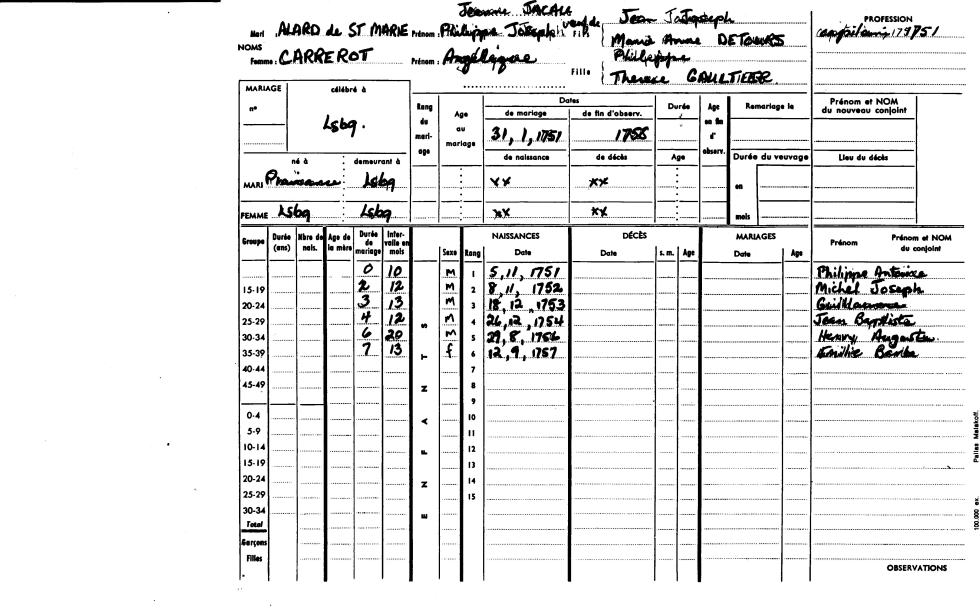 Jeanne JACALA
Mari : ALARD de ST MARIE Prénom : Philippe Joseph veuf de Fils Jean Joseph
Marie Anne DETOURS
PROFESSION
capitaine 1751
NOMS
Femme : CARREROT Prénom : Angélique Fille Philippe
Therese GAULTIER
MARIAGE célébré à
n° Lsbg.
Rang du mari-age
Age au mariage
Dates
de mariage de fin d'observ.
31, 1, 1751 1758
Durée
Age en fin d' observ.
Remariage le
Prénom et NOM du nouveau conjoint
né à demeurant à
de naissance de décès Age Durée du veuvage Lieu du décès
MARI Lsbg xx xx en
FEMME Lsbg Lsbg xx xx mois
Groupe Durée (ans) Nbre de nais. Age de la mère Durée de mariage Inter-valle en mois Sexe Rang NAISSANCES Date DÉCÈS Date s. m. Age MARIAGES Date Age Prénom Prénom et NOM du conjoint
ENFANTS
0 10 M 1 5, 11, 1751 Philippe Antoine
15-19 2 12 M 2 8, 11, 1752 Michel Joseph
20-24 3 13 M 3 18, 12, 1753 Guillaume
25-29 4 12 M 4 26, 12, 1754 Jean Baptiste
30-34 6 20 M 5 29, 8, 1756 Henry Augustin
35-39 7 13 f 6 12, 9, 1757 Emilie
40-44 7
45-49 8
9
0-4 10
5-9 11
10-14 12
15-19 13
20-24 14
25-29 15
30-34
Total
Garçons
Filles
OBSERVATIONS
100.000 ex. Malakoff.